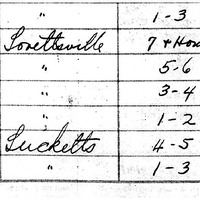 " 1-3
Lovettsville 7 & Hom
" 5-6
" 3-4
" 1-2
Lucketts 4-5
" 1-3